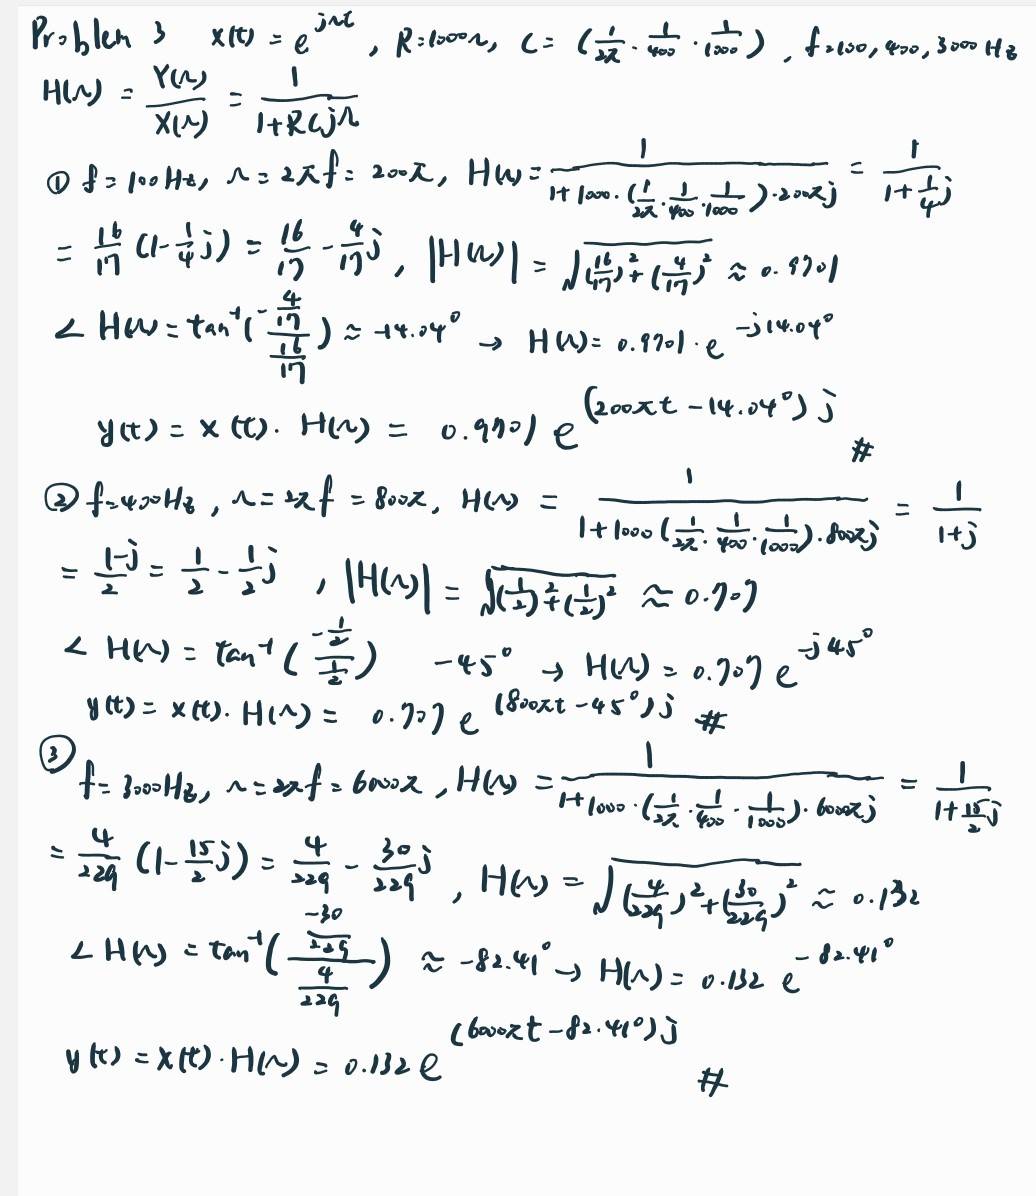 Problem 3 x(t) = e^{jΩt}, R=1000Ω, C= (1/2π · 1/400 · 1/1000), f=100, 400, 3000 Hz
H(Ω) = Y(Ω)/X(Ω) = 1/(1+RCjΩ)
① f=100Hz, Ω=2πf=200π, H(Ω)= 1/(1+1000·(1/2π · 1/400 · 1/1000)·200πj) = 1/(1+1/4 j)
= 16/17 (1-1/4 j) = 16/17 - 4/17 j, |H(Ω)| = √((16/17)²+(4/17)²) ≈ 0.9701
∠ H(Ω) = tan⁻¹((-4/17)/(16/17)) ≈ -14.04° → H(Ω)= 0.9701·e^{-j14.04°}
y(t) = x(t)· H(Ω) = 0.9701 e^{(200πt-14.04°)j} #
② f=400Hz, Ω=2πf=800π, H(Ω) = 1/(1+1000(1/2π · 1/400 · 1/1000)·800πj) = 1/(1+j)
= (1-j)/2 = 1/2 - 1/2 j, |H(Ω)| = √((1/2)²+(1/2)²) ≈ 0.707
∠ H(Ω) = tan⁻¹((-1/2)/(1/2)) -45° → H(Ω) = 0.707 e^{-j45°}
y(t) = x(t)· H(Ω) = 0.707 e^{(800πt-45°)j} #
③ f=3000Hz, Ω=2πf=6000π, H(Ω) = 1/(1+1000·(1/2π · 1/400 · 1/1000)·6000πj) = 1/(1+15/2 j)
= 4/229 (1-15/2 j) = 4/229 - 30/229 j, H(Ω) = √((4/229)²+(30/229)²) ≈ 0.132
∠ H(Ω) = tan⁻¹((-30/229)/(4/229)) ≈ -82.41° → H(Ω) = 0.132 e^{-82.41°}
y(t) = x(t)·H(Ω) = 0.132 e^{(6000πt-82.41°)j} #